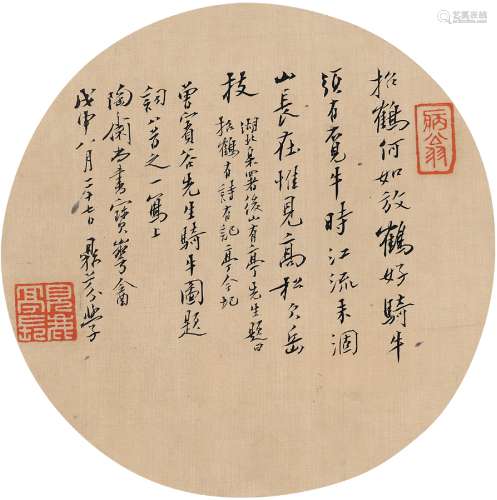 病翁
招鶴何如放鶴好騎牛
須有覓牛時江流未涸
山長在惟見高松
枝
湖北臬署後山有亭先生題曰
招鶴有詩有記亭今圮
曾賓谷先生騎牛圖題
詞八首之一寫上
陶齋尚書寶華盦
戊申八月二十七日鼎芬
艺狐在线